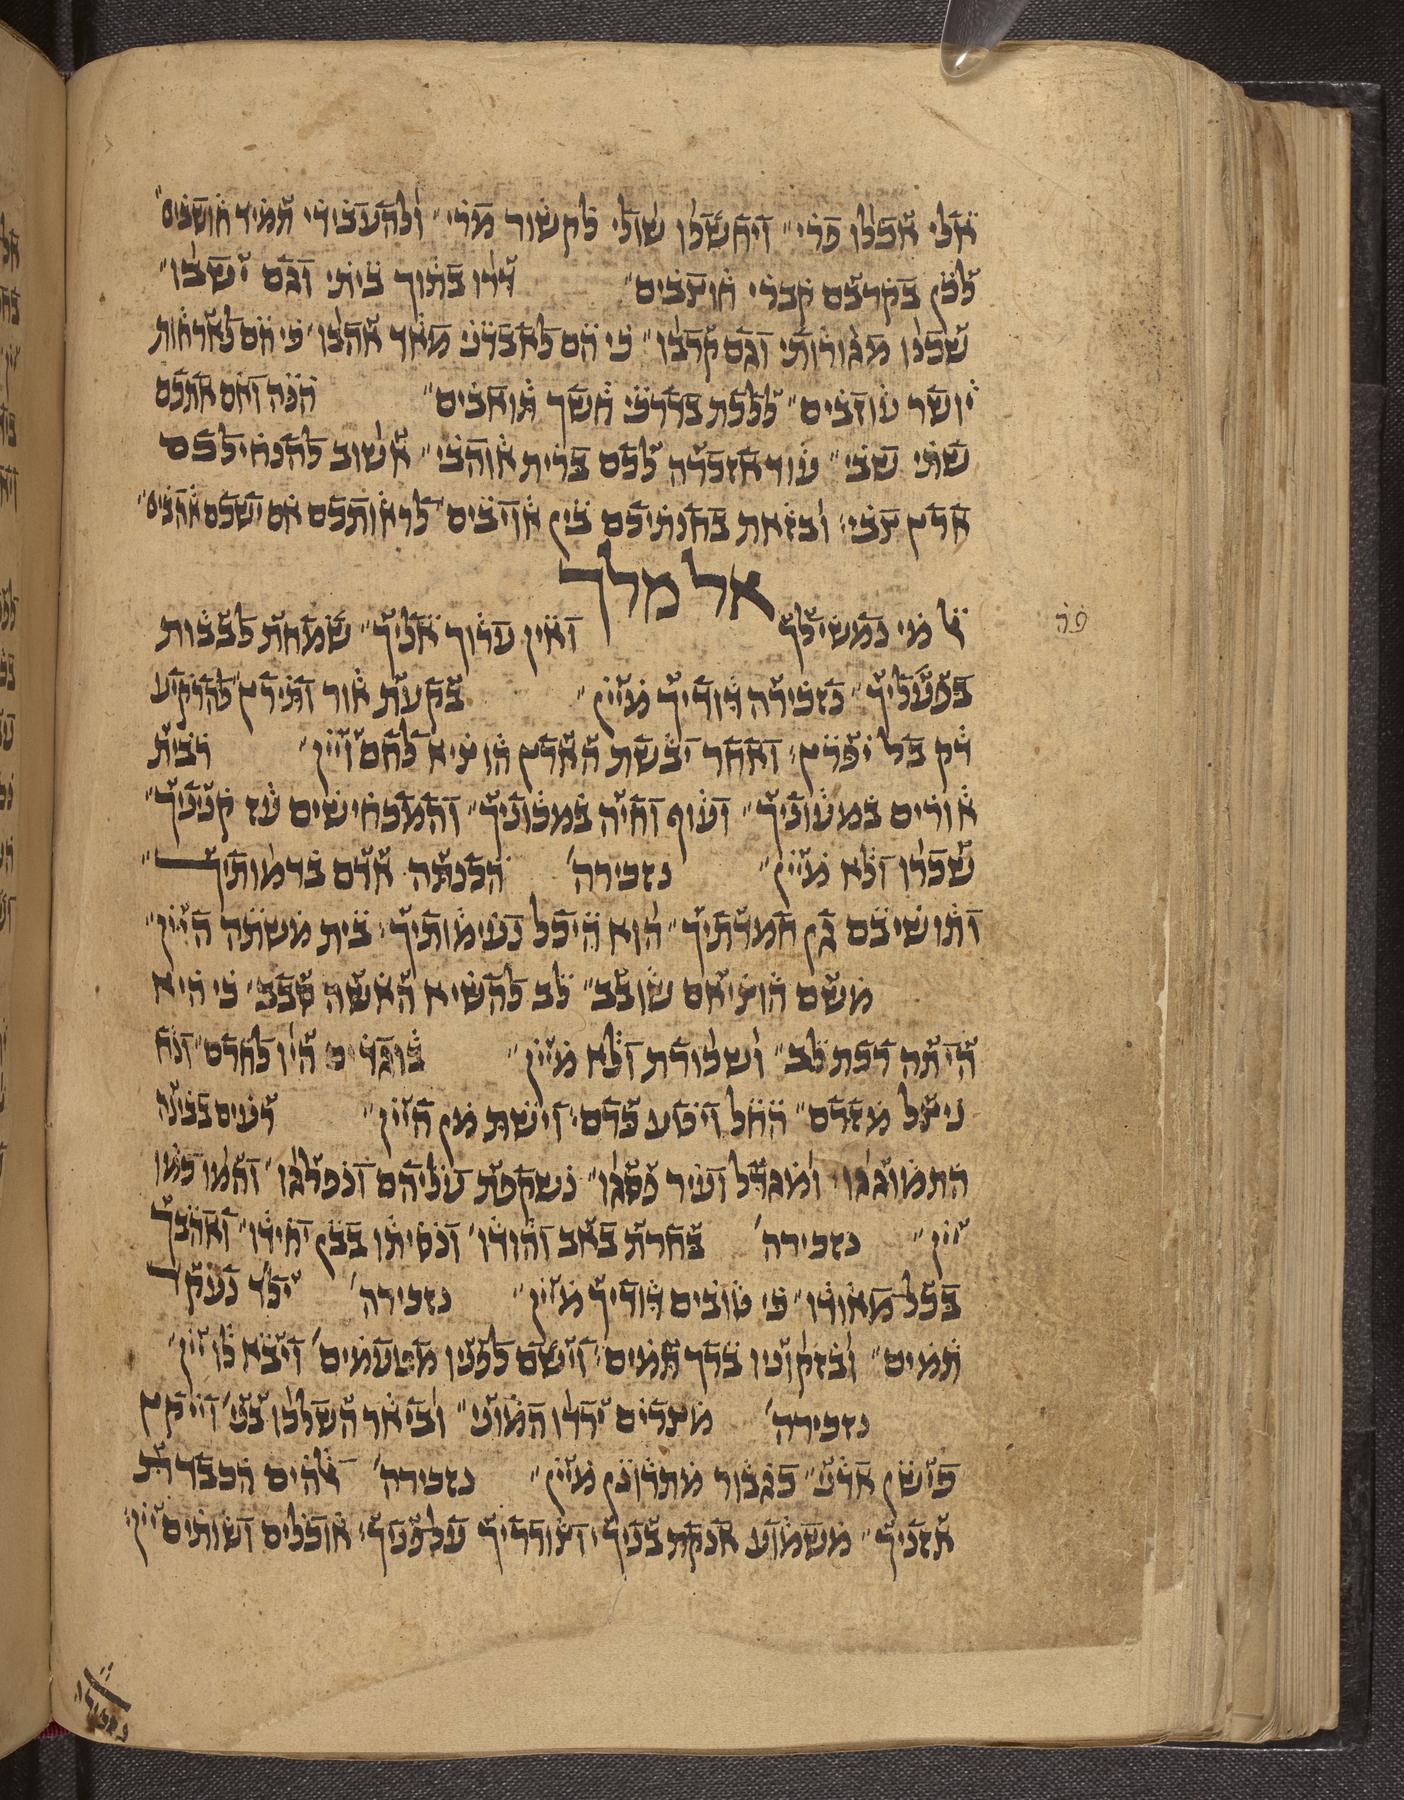 אלי אכלו פרי״ ויחשלו שולי לקשור מרי״ ולהעבידי תמיד חושבים״
לכן בקרבם קברי חוצבים״ דרו בתוך ביתי וגם ישבו״
שכנו מגורותי וגם קרבו״ כי הם לאבדני מאד אהבו׳ כי הם לארחות
יושר עוזבים״ ללכת בדרכי חשך תואבים״ הנה ואם אתכם
שתי שבי״ עוד אזכרה לכם ברית אוהבי״ אשוב להנחילכם
ארץ צבי׃ ובזאת בחנתיכם בין אויבים״ לראותכם אם ישכם אהבים״
אל מלך
אל מי נמשילך ואין ערוך אליך״ שמחת לבבות
במפעליך״ נזכירה דודיך מיין״ בקעת אור ותירץ להרקיע
רק בל יפרץ׃ ואחר יבשת הארץ הוציא לחם ויין״ רבית
אורים במעוניך״ ועוף וחיה במכוניך״ והמכחישים עז קניניך״
שכרו ולא מיין״ נזכירה׳ הלכתה אדם בדמותיך״
ותושיבם בגן חמדתיך״ הוא היכל נעימותיך׃ בית משתה היין״
משם הוציאם שובב״ לב להשיא האשה סבב׳ כי היא
היתה רכת לב״ ושכורת ולא מיין״ בוגדים היו לחרם״ ונח
ניצל מזרם״ החל ויטע כרם׃ וישת מן היין״ רעים בבינה
התמוגגו׃ ומגדל ועיר כסגו״ נשקפת עליהם ונפלגו״ והמו כמו
יין״ נזכירה׳ בחרת באב והודו׳ ונסיתו בבן יחידו״ ואהבך
בכל מאודו״ כי טובים דודיך מיין״ נזכירה׳ ילד נעקד
תמים״ ובזקוניו ברך תמים׃ וישם לפניו מטעמים׳ ויבא לו יין״
נזכירה׳ מצרים ירדו המוני״ וביאר השלכו בני׳ ויקץ
כישן אדני״ כגבור מתרונן מיין״ נזכירה׳ אלהים הכבדת
אזניך״ משמוע אנקת בניך׃ וצורריך על פניך׃ אוכלים ושותים יין׃
נזכירה